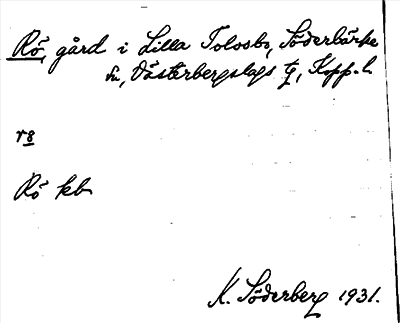 Rö, gård i Lilla Tolosbo, Söderbärke
sn, Västerbergslags tg, Kopp. l.
rö
Rö kb
K. Söderberg 1931.